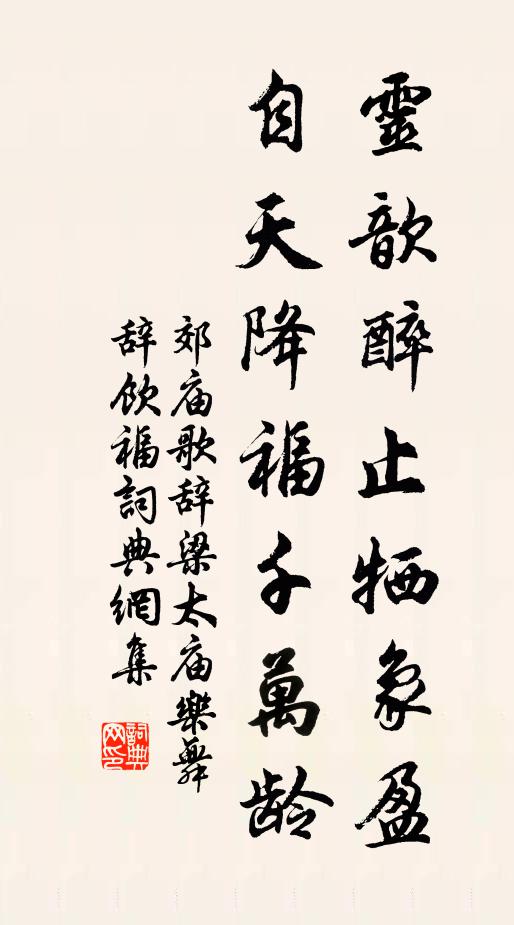 靈歆醉止牺象盈
自天降福千萬龄
郊庙歌辞梁太庙樂舞
辞饮福詞典網集
詞典
网印